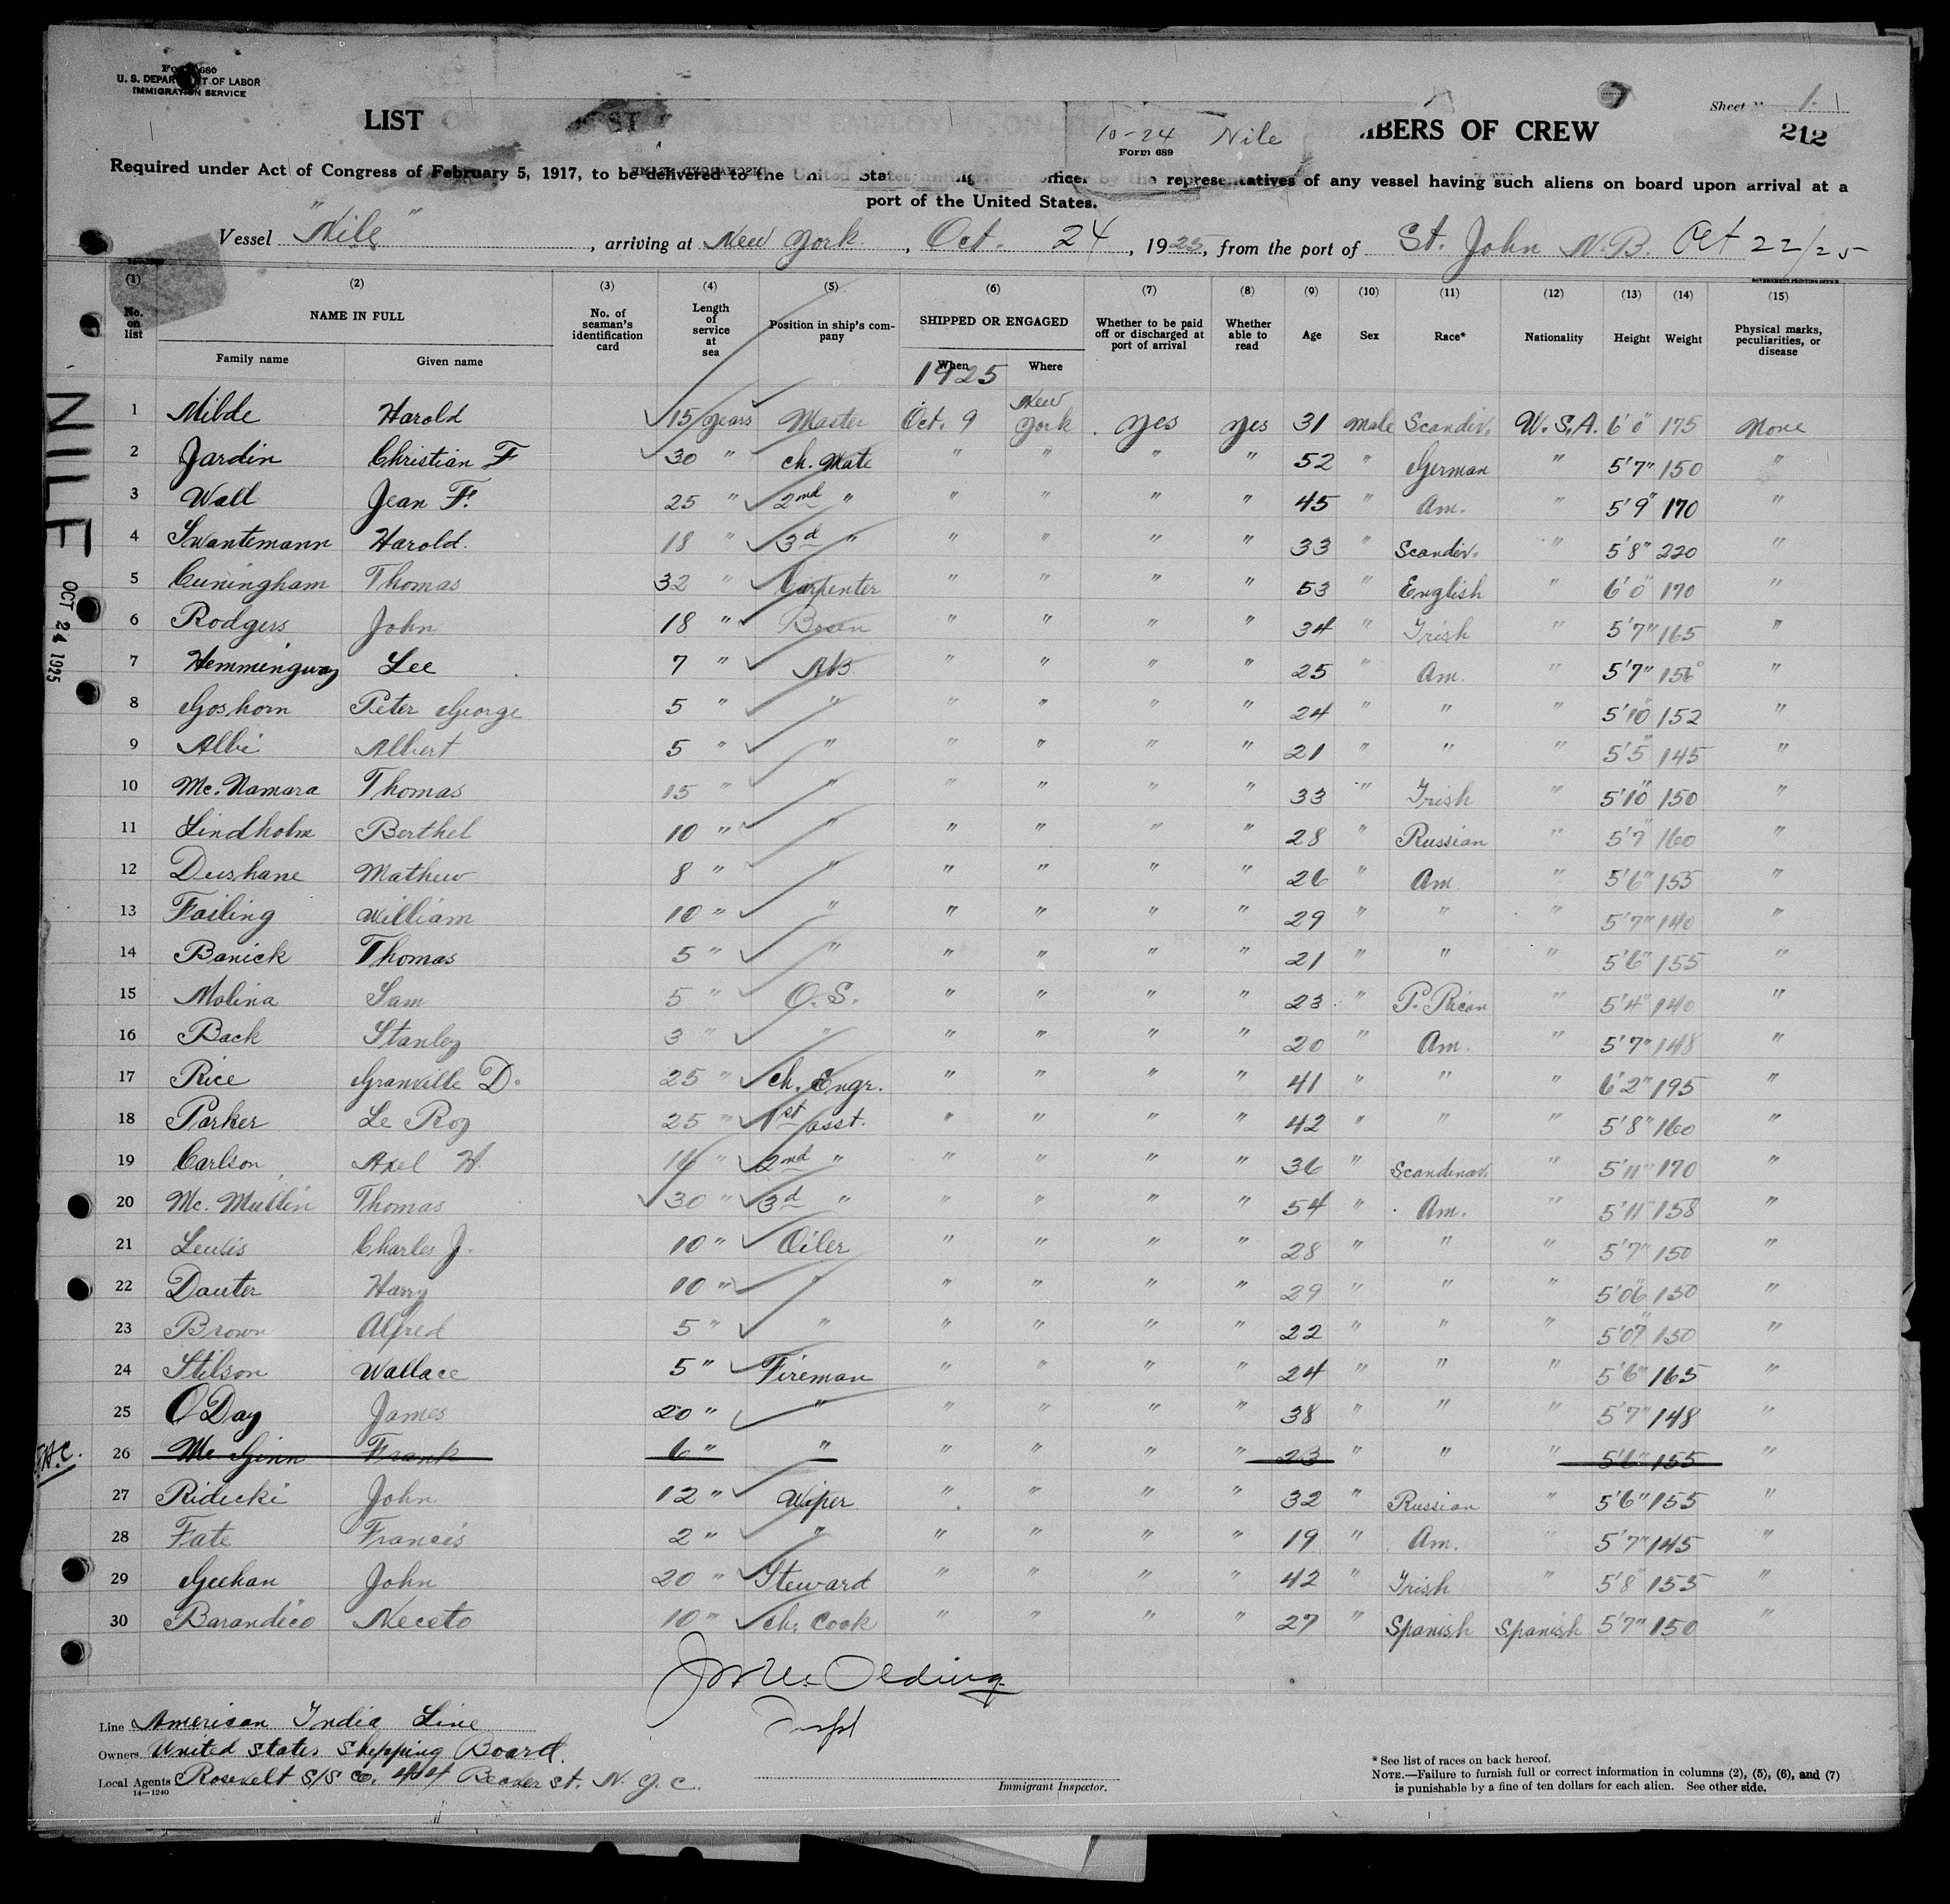 Form 680
U. S. DEPARTMENT OF LABOR
IMMIGRATION SERVICE
Sheet 1
LIST
10-24 Nile
Form 689
MEMBERS OF CREW
212
Required under Act of Congress of February 5, 1917, to be delivered to the United States immigration officer by the representatives of any vessel having such aliens on board upon arrival at a
port of the United States.
Vessel "Nile", arriving at New York, Oct. 24, 1925, from the port of St. John N.B. Oct 22/25
GOVERNMENT PRINTING OFFICE
(1) (2) (3) (4) (5) (6) (7) (8) (9) (10) (11) (12) (13) (14) (15)
No. on list NAME IN FULL Family name Given name No. of seaman's identification card Length of service at sea Position in ship's company SHIPPED OR ENGAGED When Where Whether to be paid off or discharged at port of arrival Whether able to read Age Sex Race* Nationality Height Weight Physical marks, peculiarities, or disease
1925
NILE
OCT 24 1925
1 Milde Harold 15 years Master Oct. 9 New York yes yes 31 male Scandiv. U.S.A. 6'0" 175 None
2 Jardin Christian F 30 " ch. Mate " " " " 52 " German " 5'7" 150 "
3 Wall Jean F. 25 " 2nd " " " " " 45 " Am. " 5'9" 170 "
4 Swantemann Harold. 18 " 3d " " " " " 33 " Scandiv. " 5'8" 220 "
5 Cuningham Thomas 32 " Carpenter " " " " 53 " English " 6'0" 170 "
6 Rodgers John 18 " Bosen " " " " 34 " Irish " 5'7" 165 "
7 Hemmingway Lee 7 " AB " " " " 25 " Am. " 5'7" 150 "
8 Goshorn Peter George 5 " " " " " " 24 " " " 5'10" 152 "
9 Albi Albert 5 " " " " " " 21 " " " 5'5" 145 "
10 Mc. Namara Thomas 15 " " " " " " 33 " Irish " 5'10" 150 "
11 Lindholm Berthel 10 " " " " " " 28 " Russian " 5'7" 160 "
12 Dushane Mathew 8 " " " " " " 26 " Am. " 5'6" 155 "
13 Failing William 10 " " " " " " 29 " " " 5'7" 140 "
14 Banick Thomas 5 " " " " " " 21 " " " 5'6" 155 "
15 Molina Sam 5 " O.S. " " " " 23 " P. Rican " 5'4" 140 "
16 Back Stanley 3 " " " " " " 20 " Am. " 5'7" 148 "
17 Rice Granville D. 25 " ch. Engr. " " " " 41 " " " 6'2" 195 "
18 Parker Le Roy 25 " 1st asst. " " " " 42 " " " 5'8" 160 "
19 Carlson Axel H. 16 " 2nd " " " " " 36 " Scandinav. " 5'11" 170 "
20 Mc. Mullin Thomas 30 " 3d " " " " " 54 " Am. " 5'11" 158 "
21 Lewis Charles J. 10 " Oiler " " " " 28 " " " 5'7" 150 "
22 Dauter Harry 10 " " " " " " 29 " " " 5'06" 130 "
23 Brown Alfred 5 " " " " " " 22 " " " 5'07" 150 "
24 Stilson Wallace 5 " Fireman " " " " 24 " " " 5'6" 165 "
25 O Day James 20 " " " " " " 38 " " " 5'7" 148 "
26 Mc Ginn Frank 6 " " " " " " 23 " " " 5'6" 155 "
27 Ridecki John 12 " Wiper " " " " 32 " Russian " 5'6" 155 "
28 Fate Francis 2 " " " " " " 19 " Am. " 5'7" 145 "
29 Geehan John 20 " Steward " " " " 42 " Irish " 5'8" 155 "
30 Barandico Neceto 10 " ch. Cook " " " " 27 " Spanish Spanish 5'7" 150 "
Line American India Line
Owners United States Shipping Board.
Local Agents Rosevelt S/S Co. 44 Beaver St. N.Y.C.
14—1240
Immigrant Inspector.
* See list of races on back hereof.
NOTE.—Failure to furnish full or correct information in columns (2), (5), (6), and (7)
is punishable by a fine of ten dollars for each alien. See other side.